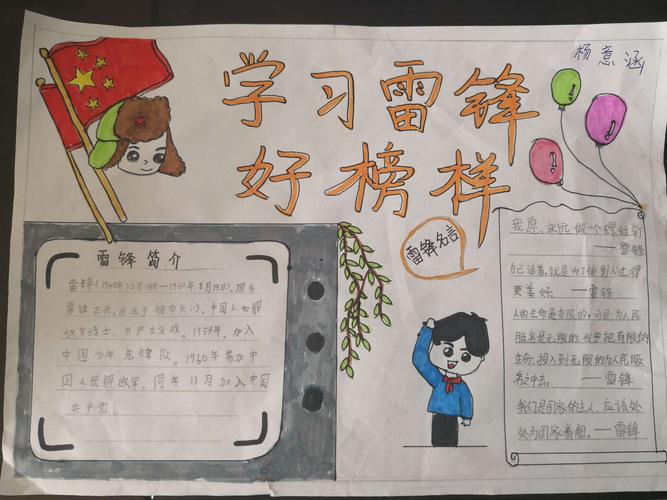 杨薏涵
学习雷锋
好榜样
雷锋名言
雷锋简介
雷锋(1940年12月18日—1962年8月15日),原名
雷正兴,出生于湖南长沙,中国人民解
放军战士、共产主义战。1954年加入
中国少年先锋队。1960年参加中
国人民解放军,同年11月加入中国
共产党。
我愿永远做一个螺丝钉
——雷锋
自己活着,就是为了使别人过得
更美好。——雷锋
人的生命是有限的,可是,为人民
服务是无限的,我要把有限的
生命,投入到无限的为人民服
务之中去。——雷锋
我们是国家的主人,应该处
处为国家着想。——雷锋